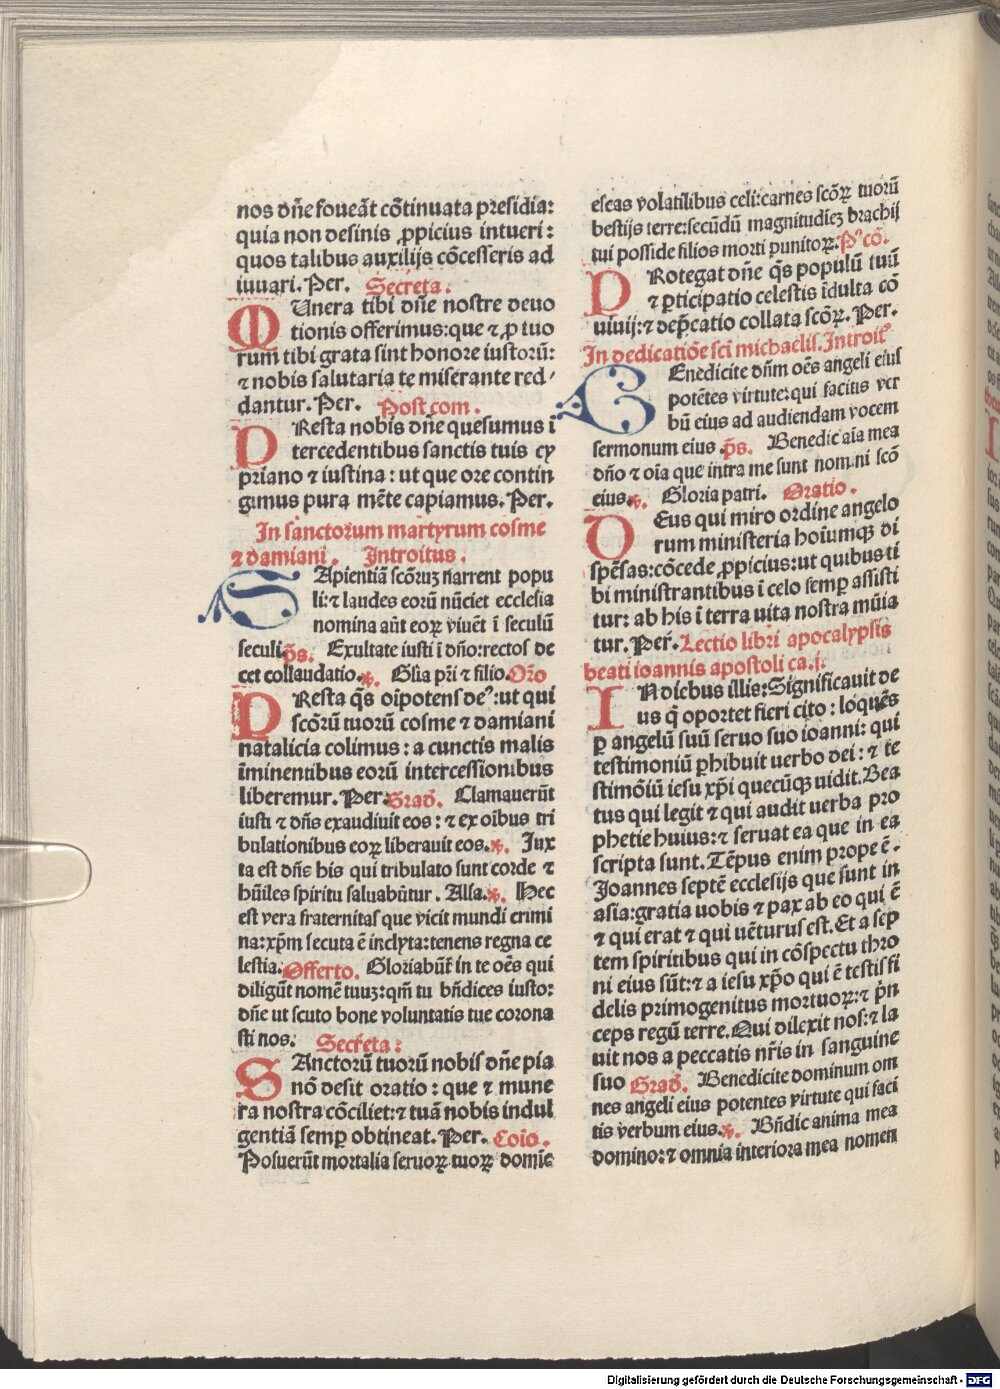 nos dñe foueãt cõtinuata presidia:
quia non desinis ꝓpicius intueri:
quos talibus auxilijs cõcesseris ad
iuuari. Per. Secreta.
MUnera tibi dñe nostre deuo
tionis offerimus: que ⁊ ꝓ tuo
rum tibi grata sint honore iustorũ:
⁊ nobis salutaria te miserante red⸗
dantur. Per. Post com.
PResta nobis dñe quesumus ĩ
tercedentibus sanctis tuis cy
priano ⁊ iustina: ut que ore contin
gimus pura mẽte capiamus. Per.
In sanctorum martyrum cosme
⁊ damiani. Introitus.
SApientiã scõruꝫ narrent popu
li: ⁊ laudes eorũ nũciet ecclesia
nomina aũt eoꝝ viuẽt ĩ seculũ
seculi. p̃s. Exultate iusti ĩ dño: rectos de
cet collaudatio. ℣. Glia pr̃i ⁊ filio. Or̃o
PResta q̃s oĩpotens deꝰ: ut qui
scõrũ tuorũ cosme ⁊ damiani
natalicia colimus: a cunctis malis
ĩminentibus eorũ intercessionibus
liberemur. Per. Grad̃. Clamauerũt
iusti ⁊ dñs exaudiuit eos: ⁊ ex oĩbus tri
bulationibus eoꝝ liberauit eos. ℣. Iux
ta est dñs his qui tribulato sunt corde ⁊
hũiles spiritu saluabũtur. Alla. ℣. Hec
est vera fraternitas que vicit mundi crimi
na: xp̃m secuta ẽ inclyta: tenens regna ce
lestia. Offerto. Gloriabũt̃ in te oẽs qui
diligũt nomẽ tuuꝫ: qm̃ tu bñdices iusto:
dñe ut scuto bone voluntatis tue corona
sti nos. Secreta:
SAnctorũ tuorũ nobis dñe pia
nõ desit oratio: que ⁊ mune
ra nostra cõciliet: ⁊ tuã nobis indul
gentiã semꝑ obtineat. Per. Coio.
Posuerũt mortalia seruoꝝ tuoꝝ domĩe
escas volatilibus celi: carnes scõꝝ tuorũ
bestijs terre: secũdũ magnitudiẽꝫ brachij
tui posside filios morti punitoꝝ. Pꝰ cõ.
PRotegat dñe q̃s populũ tuũ
⁊ ꝑticipatio celestis ĩdulta cõ
uiuij: ⁊ dep̃catio collata scõꝝ. Per.
In dedicatiõe sc̃i michaelis. Introitꝰ
BEnedicite dñm oẽs angeli eius
potẽtes virtute: qui facitis ver
bũ eius ad audiendam vocem
sermonum eius. p̃s. Benedic aĩa mea
dño ⁊ oĩa que intra me sunt nomini scõ
eius. ℣. Gloria patri. Oratio.
DEus qui miro ordine angelo
rum ministeria hoĩumqꝫ di
spẽsas: cõcede ꝓpicius: ut quibus ti
bi ministrantibus ĩ celo semꝑ assisti
tur: ab his ĩ terra uita nostra mũia
tur. Per. Lectio libri apocalypsis
beati ioannis apostoli ca. j.
IN diebus illis: Significauit de
us q̃ oportet fieri cito: loquẽs
ꝑ angelũ suũ seruo suo ioanni: qui
testimoniũ ꝑhibuit uerbo dei: ⁊ te
stimõiũ iesu xp̃i quecũqꝫ uidit. Bea
tus qui legit ⁊ qui audit uerba pro
phetie huius: ⁊ seruat ea que in ea
scripta sunt. Tẽpus enim prope ẽ.
Joannes septẽ ecclesijs que sunt in
asia: gratia uobis ⁊ pax ab eo qui ẽ
⁊ qui erat ⁊ qui uẽturus est. Et a sep
tem spiritibus qui in cõspectu thro
ni eius sũt: ⁊ a iesu xp̃o qui ẽ testis fi
delis primogenitus mortuoꝝ: ⁊ p̃n
ceps regũ terre. Qui dilexit nos: ⁊ la
uit nos a peccatis nr̃is in sanguine
suo Grad̃. Benedicite dominum om
nes angeli eius potentes virtute qui faci
tis verbum eius. ℣. Bñdic anima mea
domino: ⁊ omnia interiora mea nomen
Digitalisierung gefördert durch die Deutsche Forschungsgemeinschaft - DFG